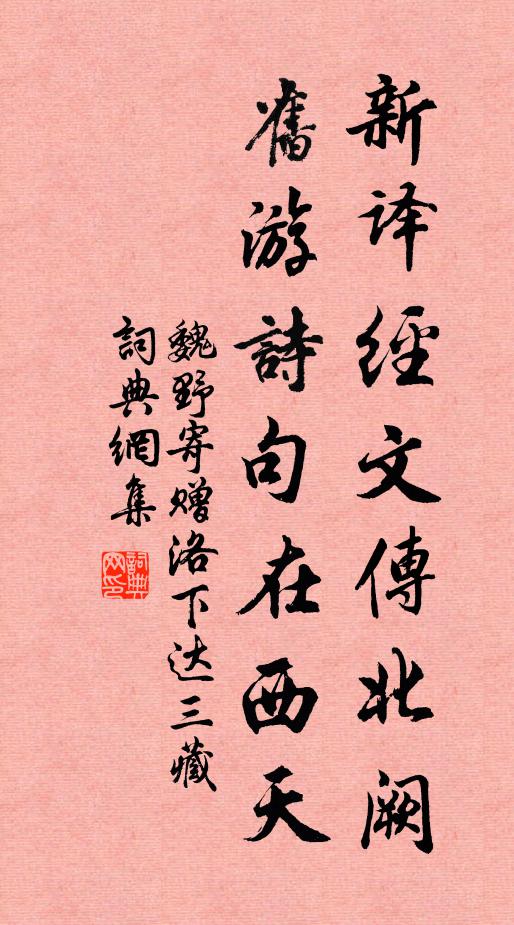 新译經文傳北阙
舊游詩句在西天
魏野寄赠洛下达三藏
詞典網集
詞典網印